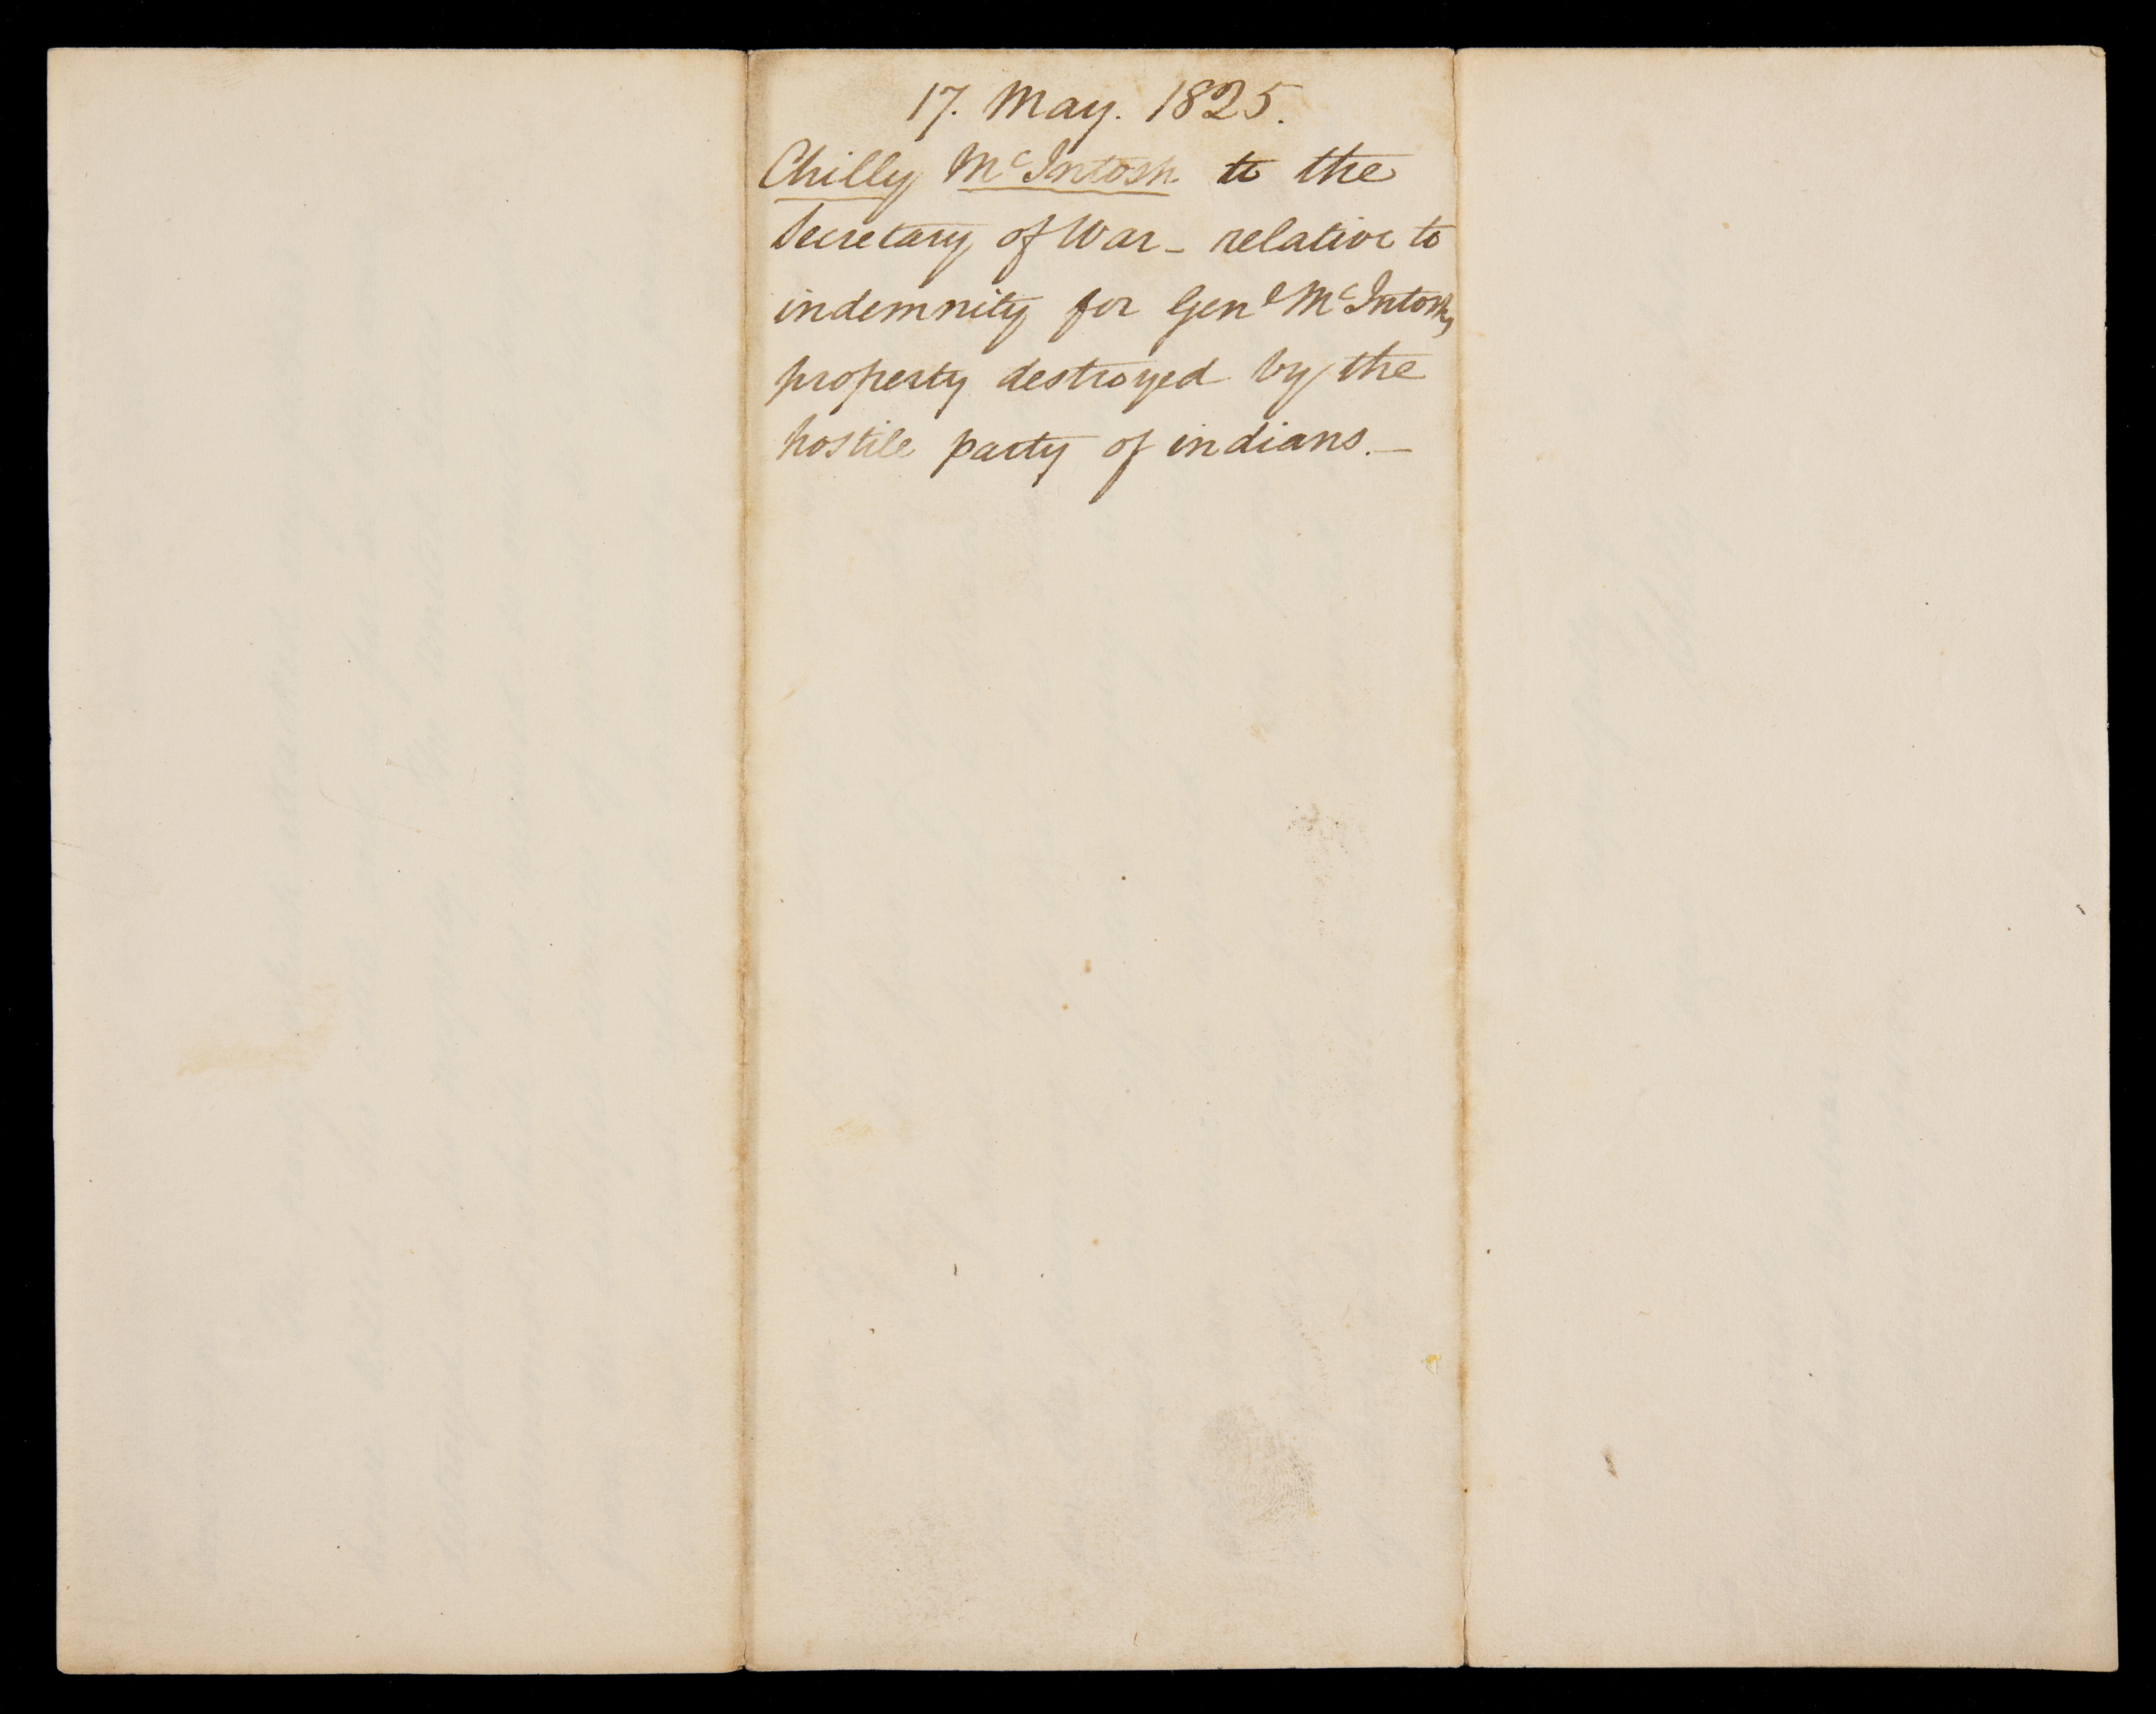 17. May. 1825.
Chilly McIntosh to the
Secretary of War - relative to
indemnity for Genl McIntoshs
property destroyed by the
hostile party of indians. -